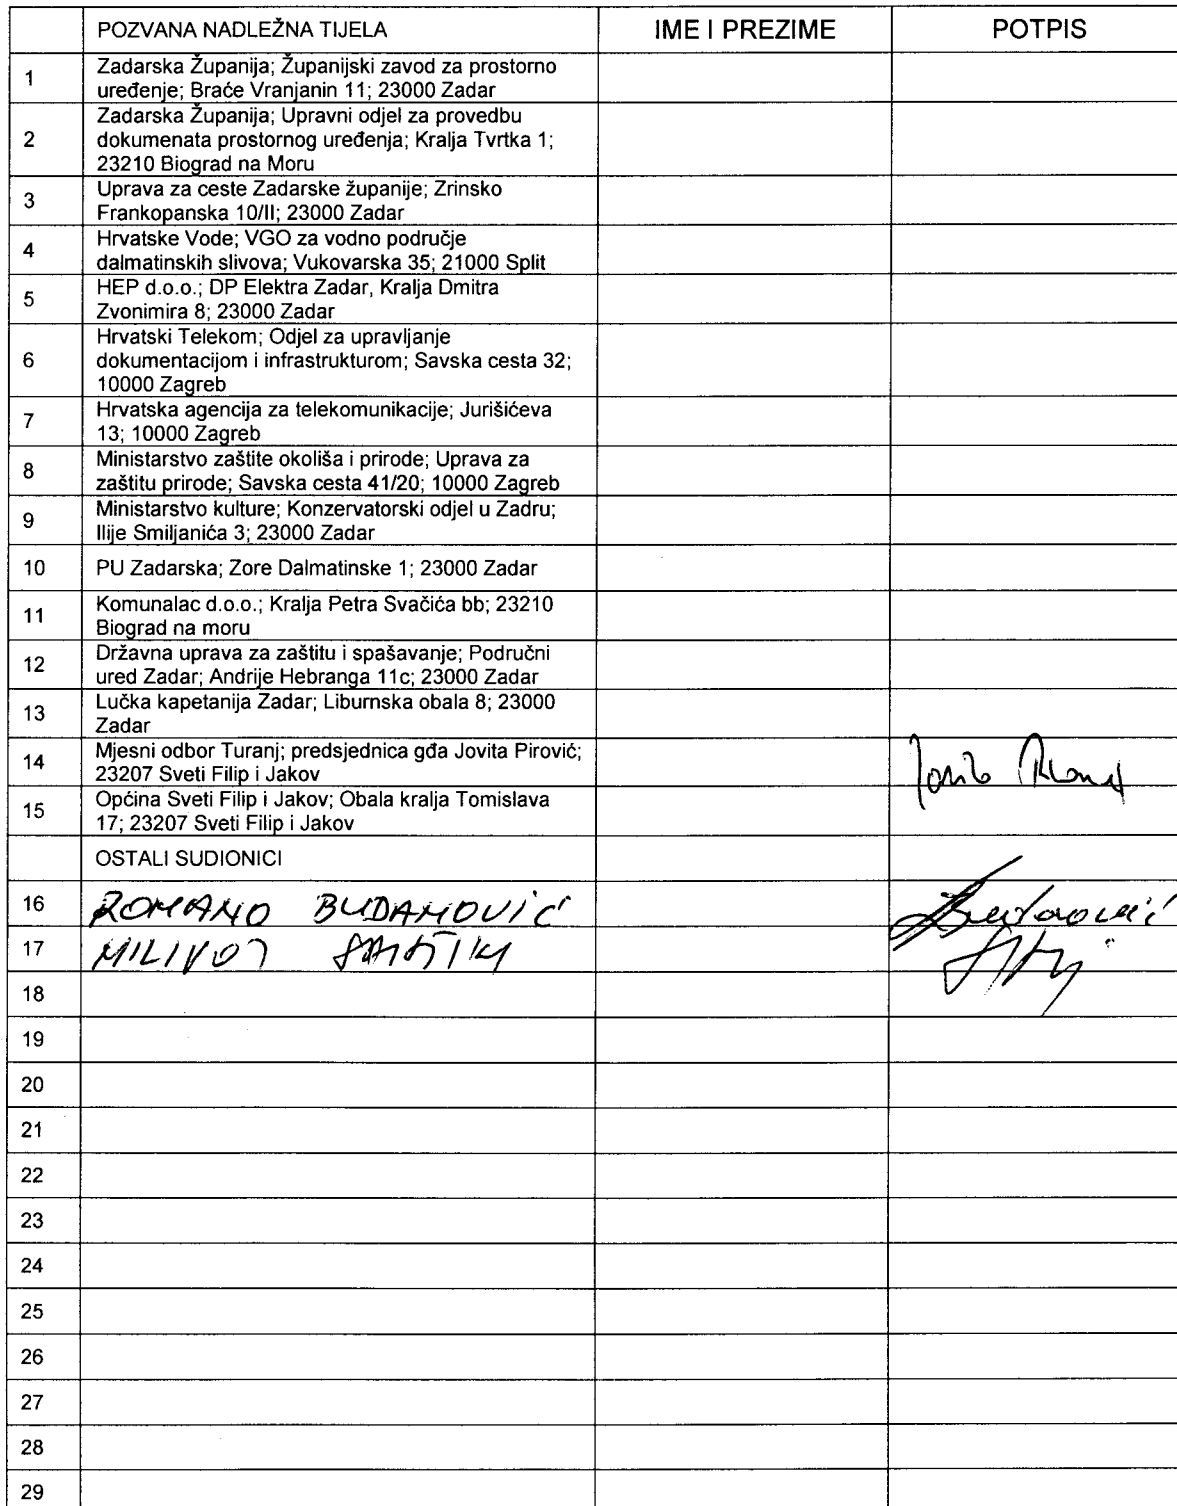 POZVANA NADLEŽNA TIJELA IME I PREZIME POTPIS
1 Zadarska Županija; Županijski zavod za prostorno
uređenje; Braće Vranjanin 11; 23000 Zadar
2 Zadarska Županija; Upravni odjel za provedbu
dokumenata prostornog uređenja; Kralja Tvrtka 1;
23210 Biograd na Moru
3 Uprava za ceste Zadarske županije; Zrinsko
Frankopanska 10/II; 23000 Zadar
4 Hrvatske Vode; VGO za vodno područje
dalmatinskih slivova; Vukovarska 35; 21000 Split
5 HEP d.o.o.; DP Elektra Zadar, Kralja Dmitra
Zvonimira 8; 23000 Zadar
6 Hrvatski Telekom; Odjel za upravljanje
dokumentacijom i infrastrukturom; Savska cesta 32;
10000 Zagreb
7 Hrvatska agencija za telekomunikacije; Jurišićeva
13; 10000 Zagreb
8 Ministarstvo zaštite okoliša i prirode; Uprava za
zaštitu prirode; Savska cesta 41/20; 10000 Zagreb
9 Ministarstvo kulture; Konzervatorski odjel u Zadru;
Ilije Smiljanića 3; 23000 Zadar
10 PU Zadarska; Zore Dalmatinske 1; 23000 Zadar
11 Komunalac d.o.o.; Kralja Petra Svačića bb; 23210
Biograd na moru
12 Državna uprava za zaštitu i spašavanje; Područni
ured Zadar; Andrije Hebranga 11c; 23000 Zadar
13 Lučka kapetanija Zadar; Liburnska obala 8; 23000
Zadar
14 Mjesni odbor Turanj; predsjednica gđa Jovita Pirović;
23207 Sveti Filip i Jakov
15 Općina Sveti Filip i Jakov; Obala kralja Tomislava
17; 23207 Sveti Filip i Jakov
OSTALI SUDIONICI
16 ROMANO BUDANOVIĆ
17 MILIVOJ
18
19
20
21
22
23
24
25
26
27
28
29